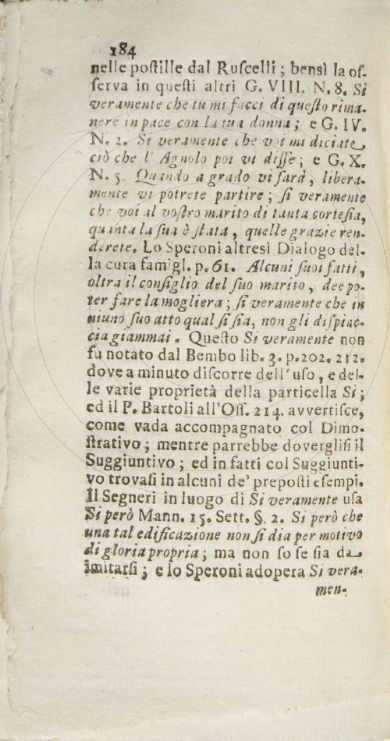 184
nelle postille dal Ruscelli; bensì la os-
serva in questi altri G. VIII. N. 8. Si
veramente che tu mi facci di questo rima-
nere in pace con la tua donna; e G. IV.
N. 2. Si veramente che voi mi diciate
ciò che l'Agnolo poi vi disse; e G. X.
N. 5. Quando a grado vi sarà, libera-
mente vi potrete partire; si veramente
che voi al vostro marito di tanta cortesia,
quanta la sua è stata, quelle grazie ren-
derete. Lo Speroni altresì Dialogo del-
la cura famigl. p. 61. Alcuni suoi fatti,
oltra il consiglio del suo marito, dee po-
ter fare la mogliera; si veramente che in
niuno suo atto qual si sia, non gli dispiac-
cia giammai. Questo Si veramente non
fu notato dal Bembo lib. 3. p. 202. 212.
dove a minuto discorre dell'uso, e del-
le varie proprietà della particella Si;
ed il P. Bartoli all'Oss. 214. avvertisce,
come vada accompagnato col Dimo-
strativo; mentre parrebbe doverglisi il
Suggiuntivo; ed in fatti col Suggiunti-
vo trovasi in alcuni de' preposti esempi.
Il Segneri in luogo di Si veramente usa
Si però Mann. 15. Sett. §. 2. Si però che
una tal edificazione non si dia per motivo
di gloria propria; ma non so se sia da
imitarsi; e lo Speroni adopera Si vera-
men-